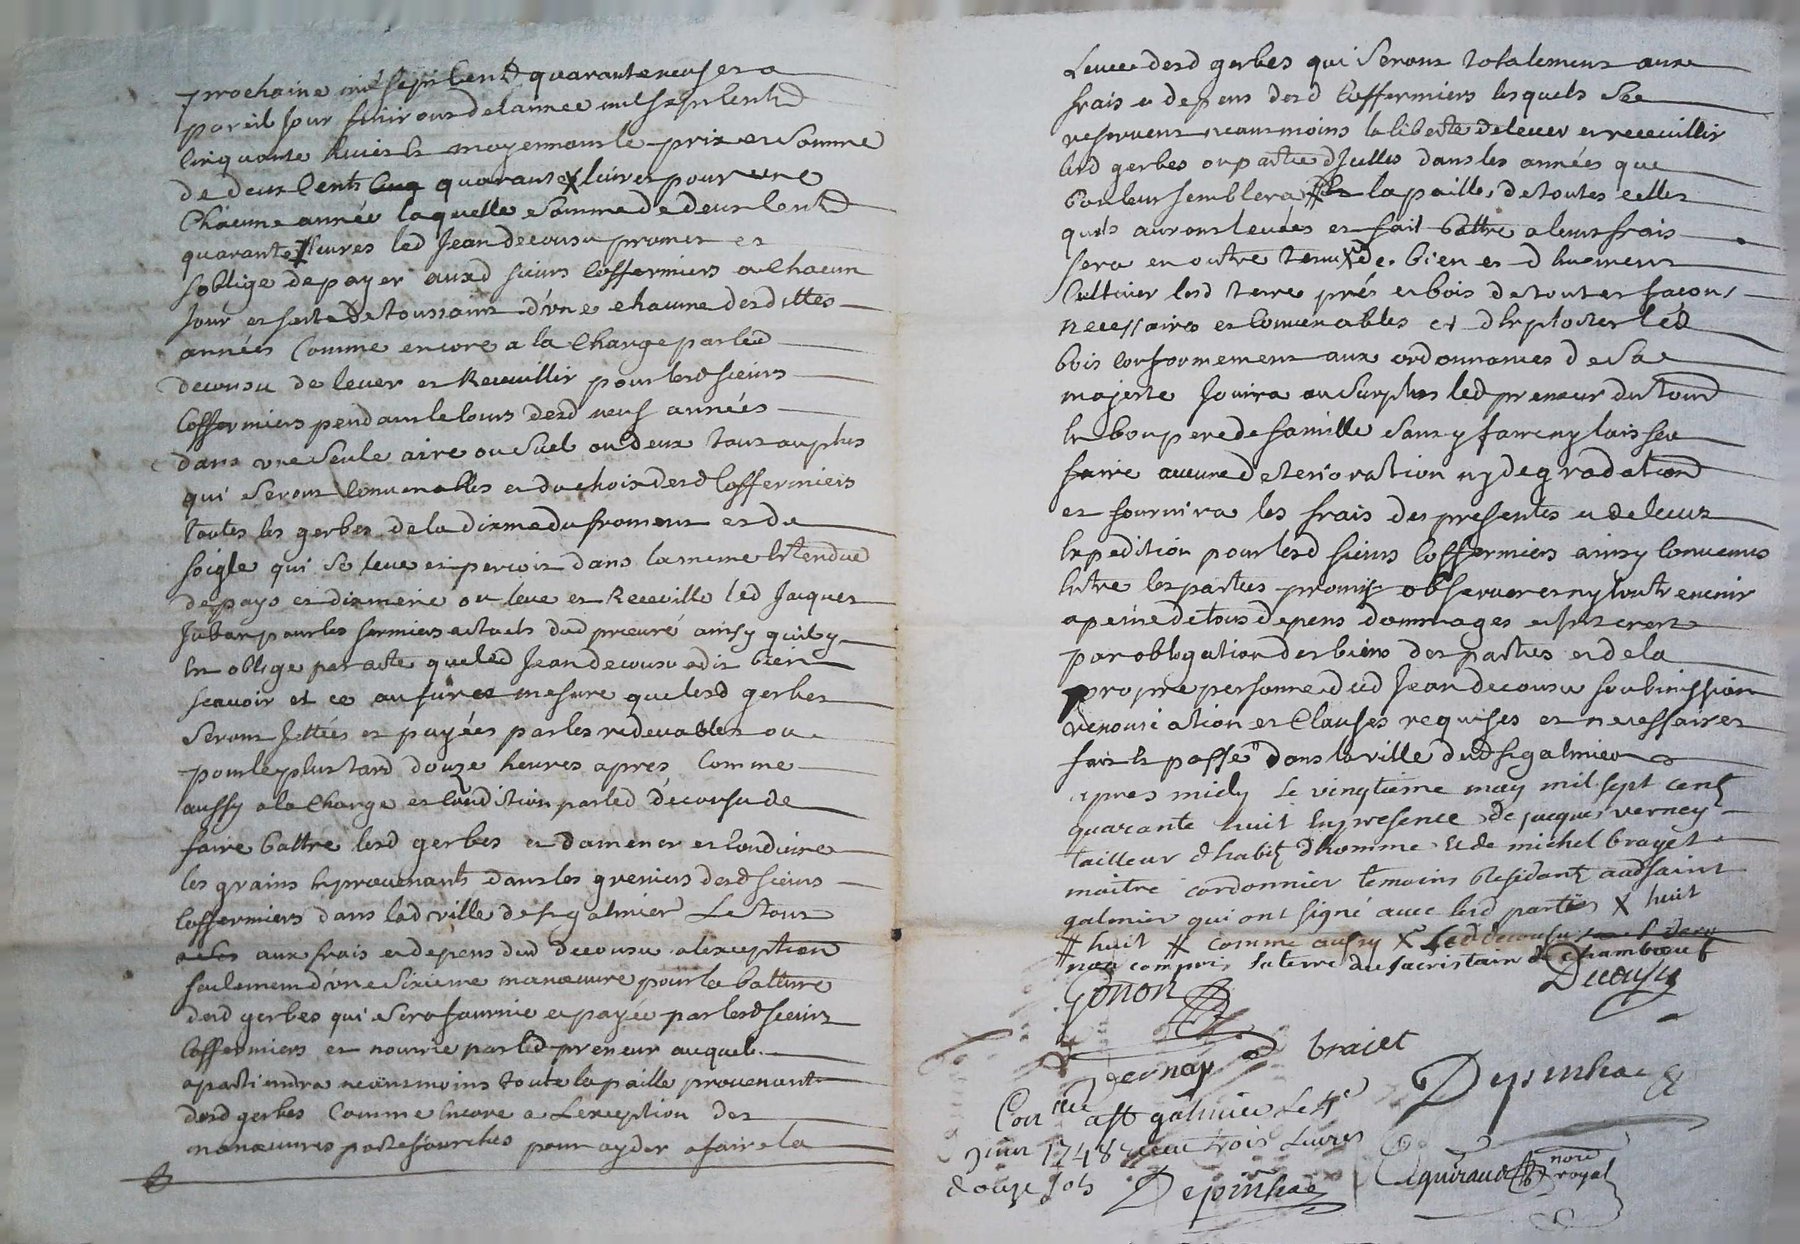 prochaine mil sept Cent quaranteneuf et a
pareil jour finiront de lannee mil sept Cent
Cinquante huict et moyennant le prix et Somme
de deux Cents quarante X livres pour une
Chacune année laquelle Somme de deux Cent
quarante X livres led Jean decousu promet et
soblige de payer auxd sieurs Coffermiers a Chacun
Jour et feste de toussaint d'une chacune desdittes
années Comme encore a la Charge par led
decousu de lever et Receuillir pour lesd sieurs
Coffermiers pendant le Cours desd neuf années
dans une Seule aire ou Suel ou deux tout au plus
qui Seront Convenables et du choix desd Coffermiers
toutes les gerbes de la dixme du froment et du
soigle qui Se leve et percoit dans la meme Entendue
de pays et dixmerie ou leve et Receuille led Jacques
Jaban pour les fermiers actuels dud prieuré ainsy quil y
En oblige par acte que led Jean decousu a dit bien
scavoir et ce au fur et mesure que lesd gerbes
Seront Jettées et payées par les redevables ou
pour le plus tard douze heures apres Comme
aussy a la Charge et Condition par led decousu de
faire battre lesd gerbes et damener et Conduire
les grains En provenants dans les greniers desd sieurs
Coffermiers dans lad ville de st galmier Le tout
aux frais et depens dud decousu a lexception
seulement d'une Sixieme manoeuvre pour la batture
desd gerbes qui Sera fournie et payée par lesd sieurs
Coffermiers et nourrie par led preneur auquel
apartiendra neantmoins toute la paille provenant
desd gerbes Comme Encore a Lexception des
manoeuvres portefourches pour ayder a faire la
Levee desd gerbes qui Seront totalement aux
frais et depens desd Coffermiers lesquels Se
reservent neantmoins la liberté de lever et receuillir
lesd gerbes ou partie d'Jcelles dans les années que
bon leur semblera # la paille de toutes celles
quils auront levées et fait battre a leurs frais
Sera en outre tenu X de bien et dhuement
Cultiver lesd terre prés et bois de toutes facons
necessaires et Convenables et dExploiter led
bois conformement aux ordonnances de Sa
majesté Jouira au Surplus led preneur du tout
En bon pere de famille Sans y faire ny laisser
faire aucune deterioration ny degradation
et fournira les frais des presentes et de leur
Expedition pour lesd sieurs Coffermiers ainsy Convenus
Entre les parties promis observer et ny Contrevenir
a peine de tous depens dommages et Jnterets
par obligation des biens des parties et de la
propre personne dud Jean decousu soubmission
renonciation et Clauses requises et necessaires
fait et passé dans la ville dud st galmier
apres midy Le vingtieme may mil sept cent
quarante huit En presence de jacques verney
tailleur d'habit d'homme et de michel brayet
maitre cordonnier temoins Residants aud saint
galmier qui ont signé avec lesd parties X huit
# huit # comme aussy X led decousu
non compris la terre du sacristain de Chambœuf
Gonon
Decousu
Vernay
brajet
Depinhac
Con^lle a st galmier Le 4^e
Juin 1748 receu trois Livres
douze sols
Depinhac
Eguiraud
no^re royal